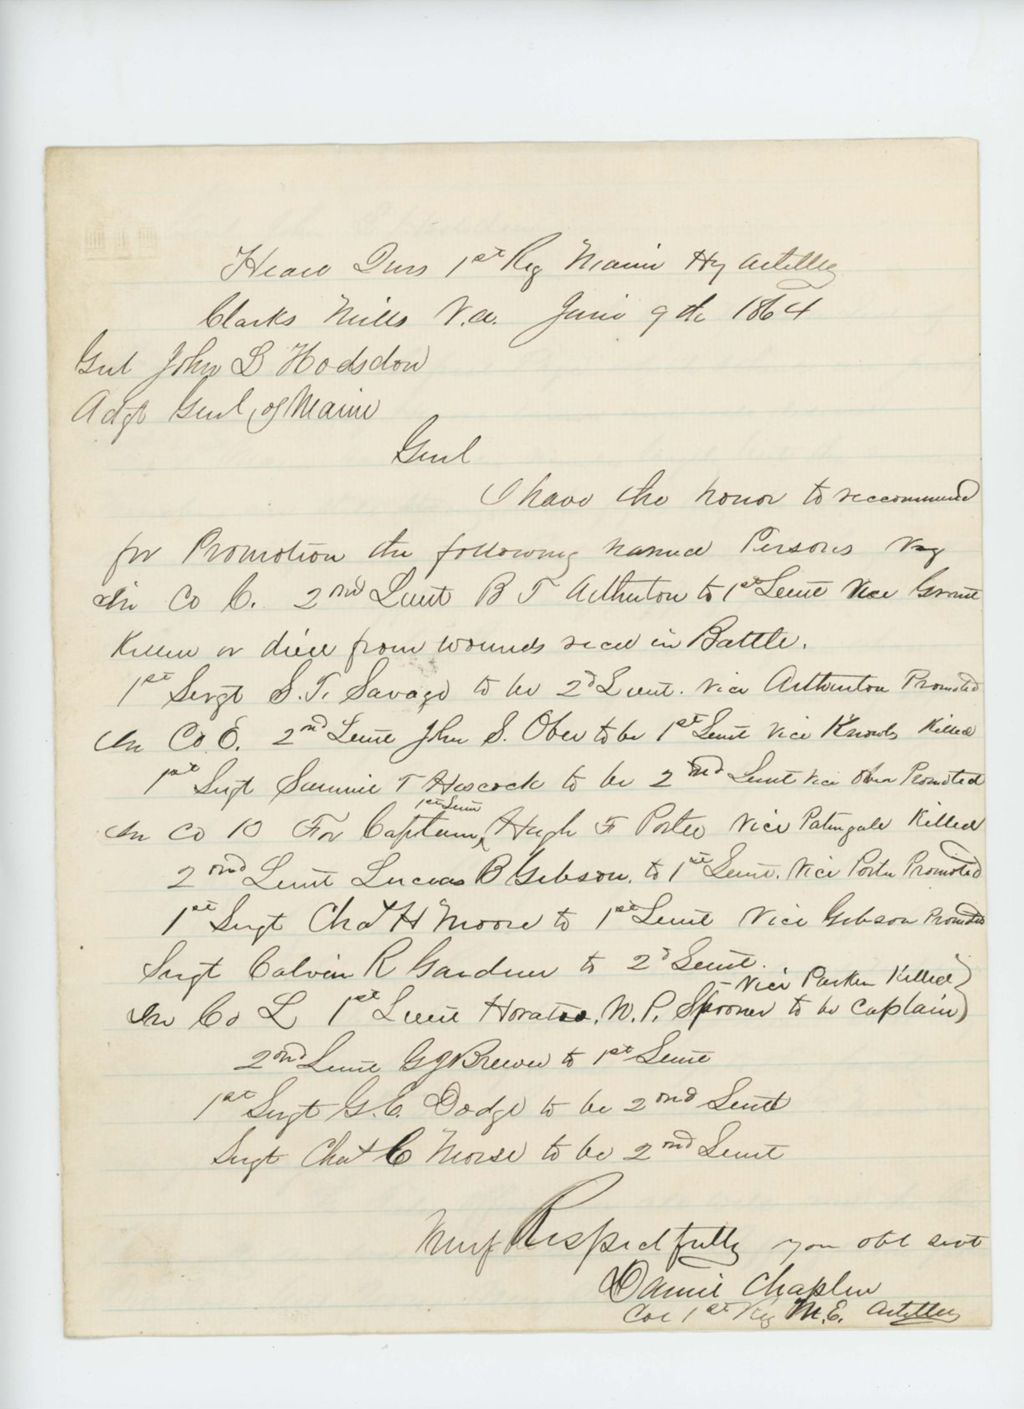 Head Qurs 1st Reg Maine Hy Artillery
Clarks Mills V.a. June 9th 1864
Genl John L Hodsdon
Adgt Genl, of Maine
Genl
I have the honor to reccommend
for Promotion the following named Persons Viz
In Co C. 2nd Lieut B T Atherton to 1st Lieut Vice Grant
Killed or died from wounds recd in Battle.
1st Sergt S. T. Savage to be 2d Lieut. Vice Atherton Promoted
In Co E. 2nd Lieut John S. Ober to be 1st Lieut Vice Knowls Killed
1st Sergt Sammie T Hiscock to be 2nd Lieut Vice Ober Promoted
In Co K For Captain, 1st Lieut Hugh F Porter Vice Patingale Killed
2nd Lieut Lucius B Gibson. to 1st Lieut. Vice Porter Promoted
1st Sergt Chas H Moore to 1st Lieut Vice Gibson Promoted
Sergt Calvin R Gardner to 2d Lieut.
- Vice Parker Killed)
In Co L 1st Lieut Horatio. N. P. Spooner to be Captain)
2nd Lieut G J Brewer to 1st Lieut
1st Sergt G. C. Dodge to be 2nd Lieut
Sergt Chas C Morse to be 2nd Lieut
Respectfully your obt servt
Daniel Chaplin
Col 1st Reg M.E. Artillery